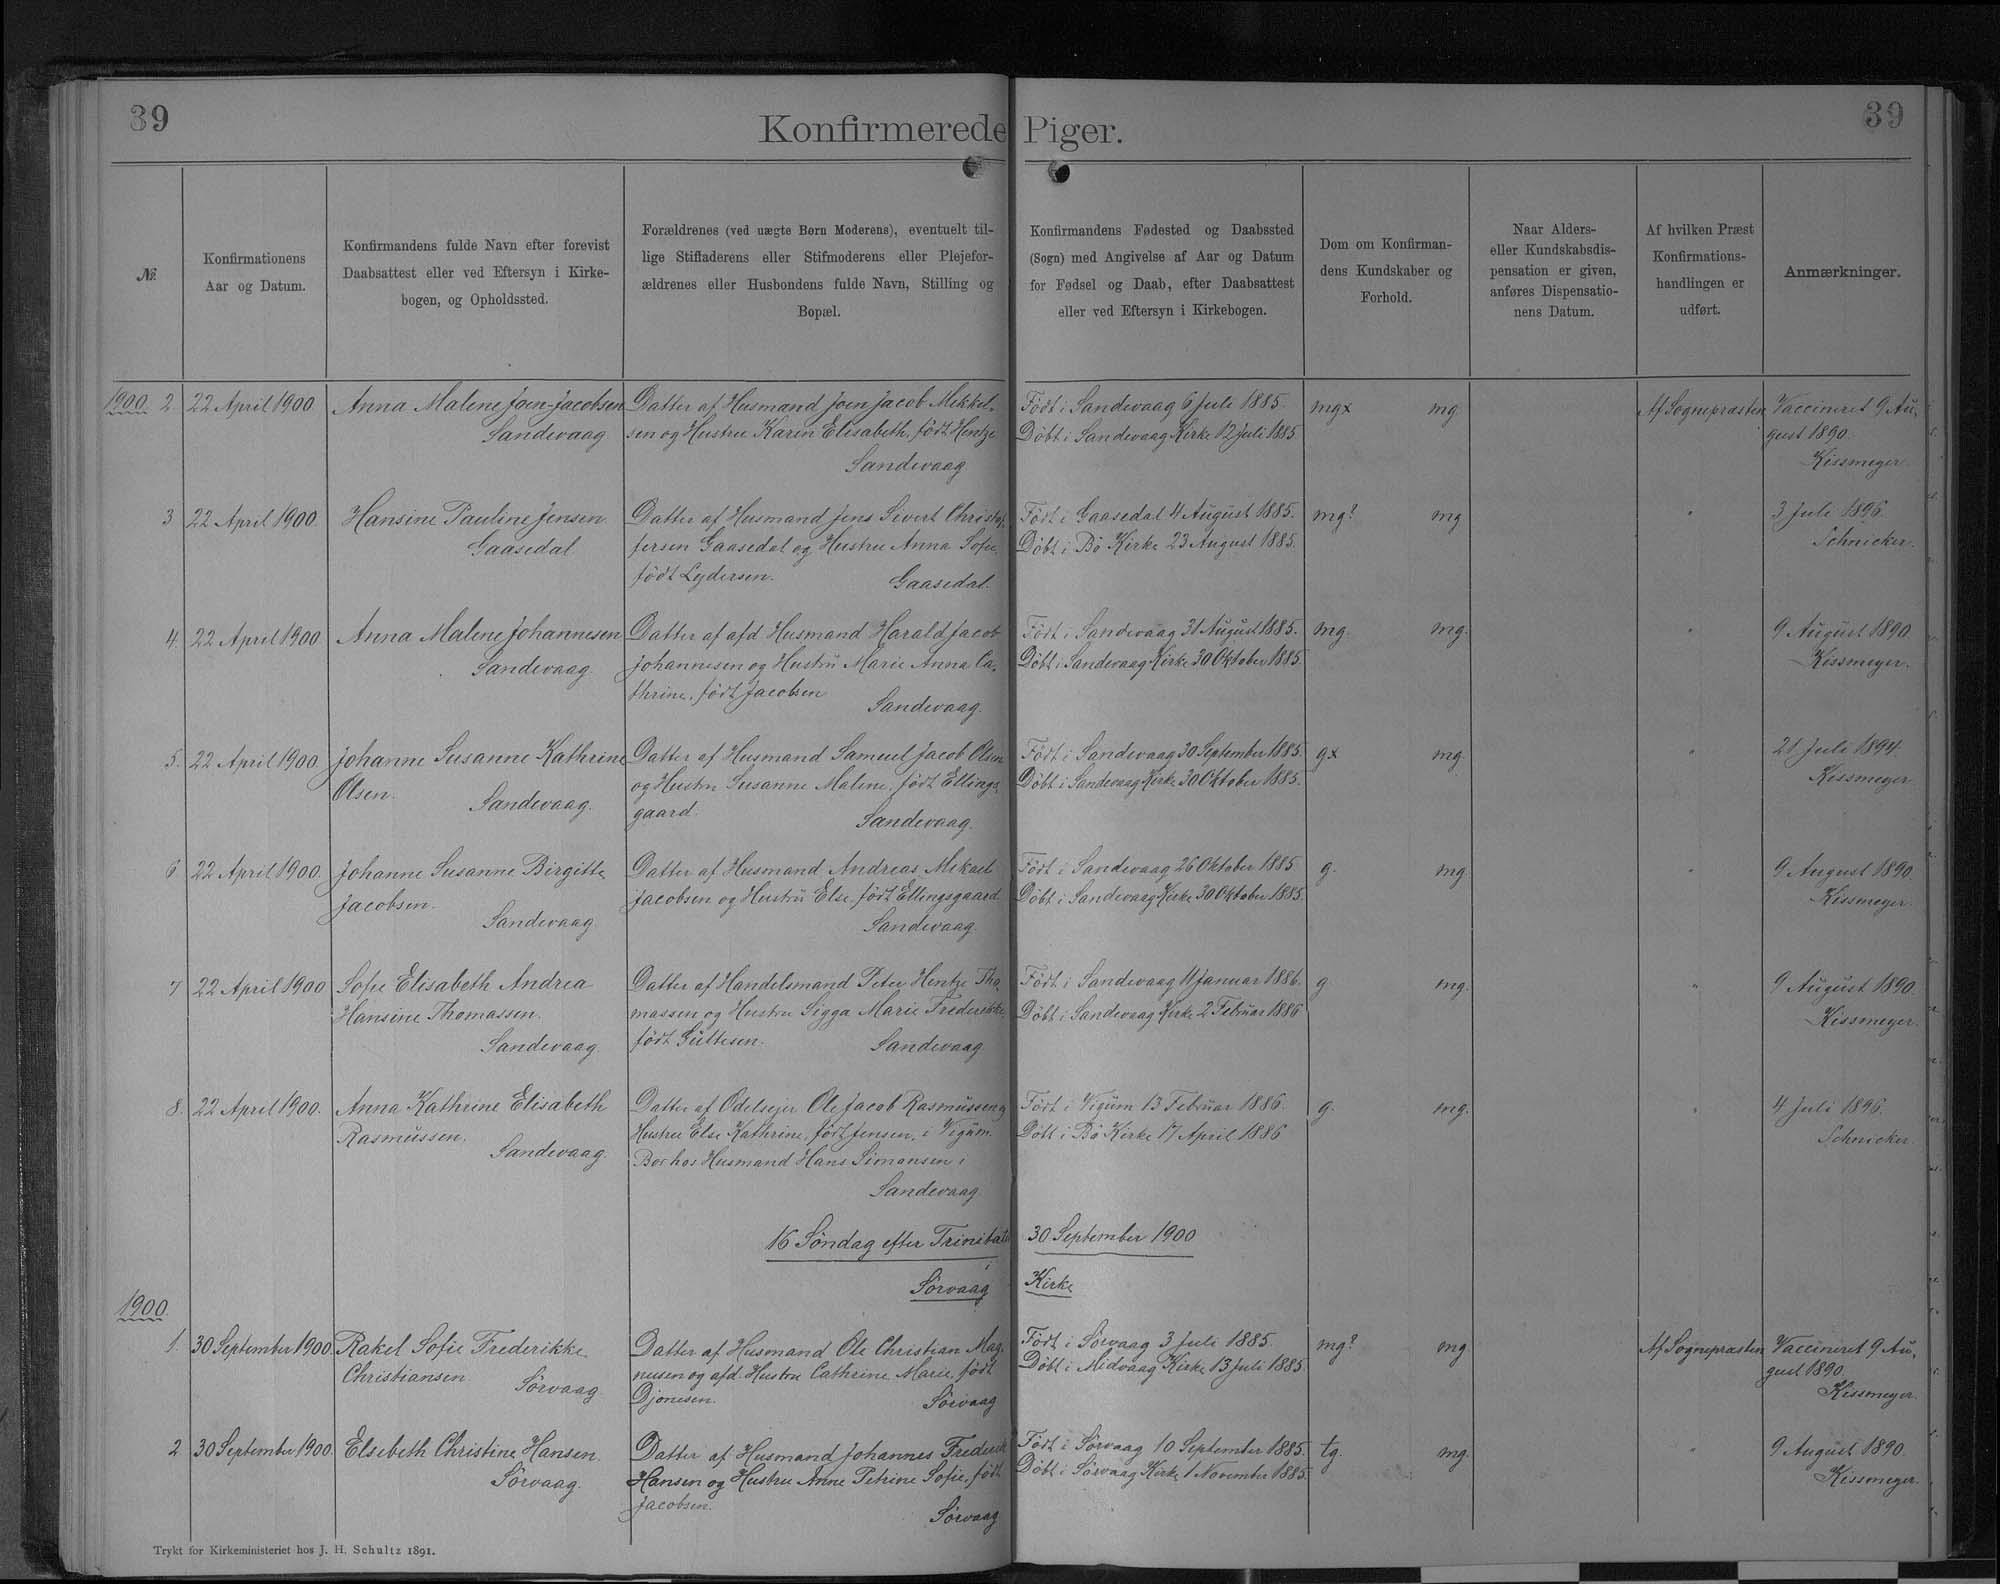 39
39
Konfirmerede Piger.
№.
Konfirmationens
Aar og Datum.
Konfirmandens fulde Navn efter forevist
Daabsattest eller ved Eftersyn i Kirke-
bogen, og Opholdssted.
Forældrenes (ved uægte Børn Moderens), eventuelt til-
lige Stiffaderens eller Stifmoderens eller Plejefor-
ældrenes eller Husbondens fulde Navn, Stilling og
Bopæl.
Konfirmandens Fødested og Daabssted
(Sogn) med Angivelse af Aar og Datum
for Fødsel og Daab, efter Daabsattest
eller ved Eftersyn i Kirkebogen.
Dom om Konfirman-
dens Kundskaber og
Forhold.
Naar Alders-
eller Kundskabsdis-
pensation er given,
anføres Dispensatio-
nens Datum.
Af hvilken Præst
Konfirmations-
handlingen er
udført.
Anmærkninger.
1900. 2. 22 April 1900
Anna Malene Joen-Jacobsen
Sandevaag
Datter af Husmand Joen Jacob Mikkel-
sen og Hustru Karin Elisabeth, født Hentze
Sandevaag
Født i Sandevaag 6 Juli 1885.
Döbt i Sandevaag Kirke 12 Juli 1885.
mgx mg.
Af Sognepræsten
Vaccineret 9 Au-
gust 1890.
Kissmeyer.
3 22 April 1900.
Hansine Pauline Jensen
Gaasedal
Datter af Husmand Jens Sivert Christof-
fersen Gaasedal og Hustru Anna Sofie,
født Lydersen.
Gaasedal.
Født i Gaasedal 4 August 1885.
Döbt i Bö Kirke 23 August 1885.
mg? mg
"
3 Juli 1896.
Schnicker.
4. 22 April 1900
Anna Malene Johannesen
Sandevaag.
Datter af afd. Husmand Harald Jacob
Johannesen og Hustru Marie Anna Ca-
thrine, født Jacobsen
Sandevaag.
Født i Sandevaag 31 August 1885.
Döbt i Sandevaag Kirke 30 Oktober 1885.
mg. mg.
"
9 August 1890.
Kissmeyer.
5. 22 April 1900.
Johanne Susanne Kathrine
Olsen.
Sandevaag.
Datter af Husmand Samuel Jacob Olsen
og Hustru Susanne Malene, født Ellings-
gaard.
Sandevaag.
Født i Sandevaag 30 September 1885.
Döbt i Sandevaag Kirke 30 Oktober 1885.
gx mg.
"
21 Juli 1894.
Kissmeyer
6 22 April 1900.
Johanne Susanne Birgitte
Jacobsen.
Sandevaag
Datter af Husmand Andreas Mikael
Jacobsen og Hustru Else, født Ellingsgaard
Sandevaag.
Født i Sandevaag 26 Oktober 1885
Döbt i Sandevaag Kirke 30 Oktober 1885.
g. mg.
"
9 August 1890.
Kissmeyer.
7 22 April 1900
Sofie Elisabeth Andrea
Hansine Thomassen.
Sandevaag.
Datter af Handelsmand Peter Hentze Tho-
massen og Hustru Sigga Marie Frederikke,
født Guttesen.
Sandevaag
Født i Sandevaag 11 Januar 1886.
Döbt i Sandevaag Kirke 2 Februar 1886
g mg.
"
9 August 1890.
Kissmeyer.
8. 22 April 1900.
Anna Kathrine Elisabeth
Rasmussen.
Sandevaag.
Datter af Odelsejer Ole Jacob Rasmussen og
Hustru Else Kathrine, født Jensen, i Vigum.
Bor hos Husmand Hans Simonsen i
Sandevaag
Født i Vigum 13 Februar 1886.
Döbt i Bö Kirke 17 April 1886
g. mg.
"
4 Juli 1896.
Schnicker.
16 Söndag efter Trinitatis 30 September 1900
Sörvaag Kirke
1900.
1. 30 September 1900
Rakel Sofie Frederikke
Christiansen.
Sörvaag
Datter af Husmand Ole Christian Mag-
nusen og afd. Hustru Cathrine Marie, født
Djonesen.
Sörvaag
Født i Sörvaag 3 Juli 1885.
Döbt i Midvaag Kirke 13 Juli 1885.
mg? mg
Af Sognepræsten
Vaccineret 9 Au-
gust 1890.
Kissmeyer.
2 30 September 1900.
Elsebeth Christine Hansen.
Sörvaag.
Datter af Husmand Johannes Frederik
Hansen og Hustru Anne Petrine Sofie, født
Jacobsen.
Sörvaag
Født i Sörvaag 10 September 1885.
Döbt i Sörvaag Kirke 1 November 1885.
tg. mg.
"
9 August 1890.
Kissmeyer.
Trykt for Kirkeministeriet hos J. H. Schultz 1891.